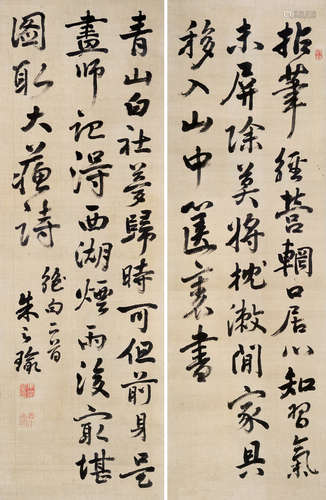 拈筆經營輞口居心知習氣
未屏除莫將枕漱閒家具
移入山中篋裏書
青山白社夢歸時可但前身是
畫師記得西湖煙雨後最堪
圖取大蘇詩
絕句二首
朱之瑜